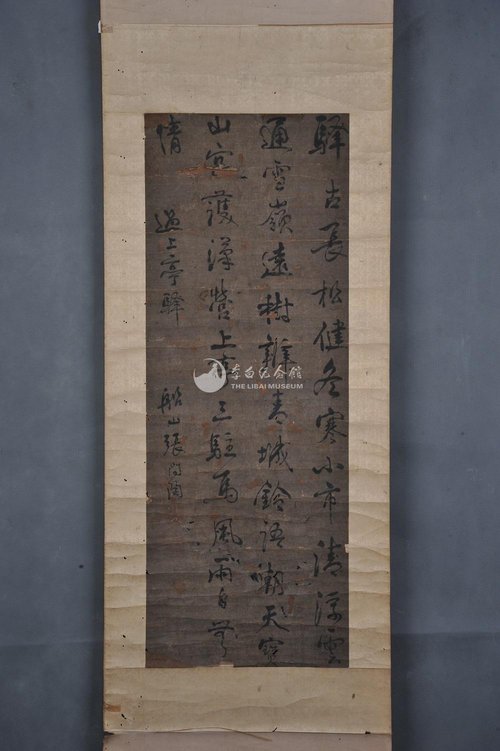 驛古長松健冬寒小市清浮雲
通雪嶺遠樹辨青城鈴語嘲天寶
山容護漢營上亭三駐馬風雨自無
情 過上亭驛 船山張問陶
李白纪念馆
THE LIBAI MUSEUM